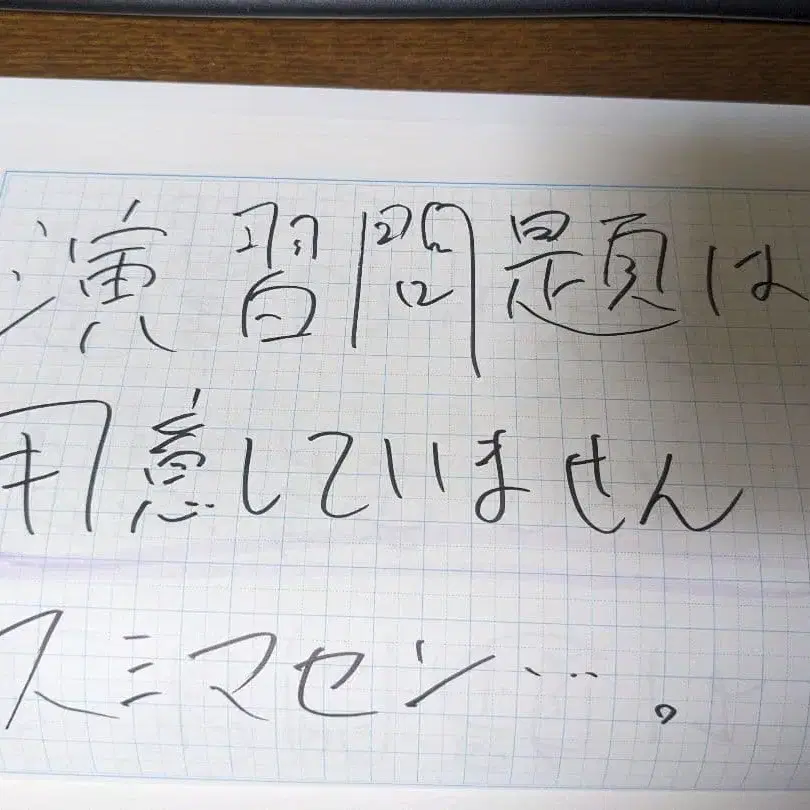 演習問題は
用意していません
スミマセン…。